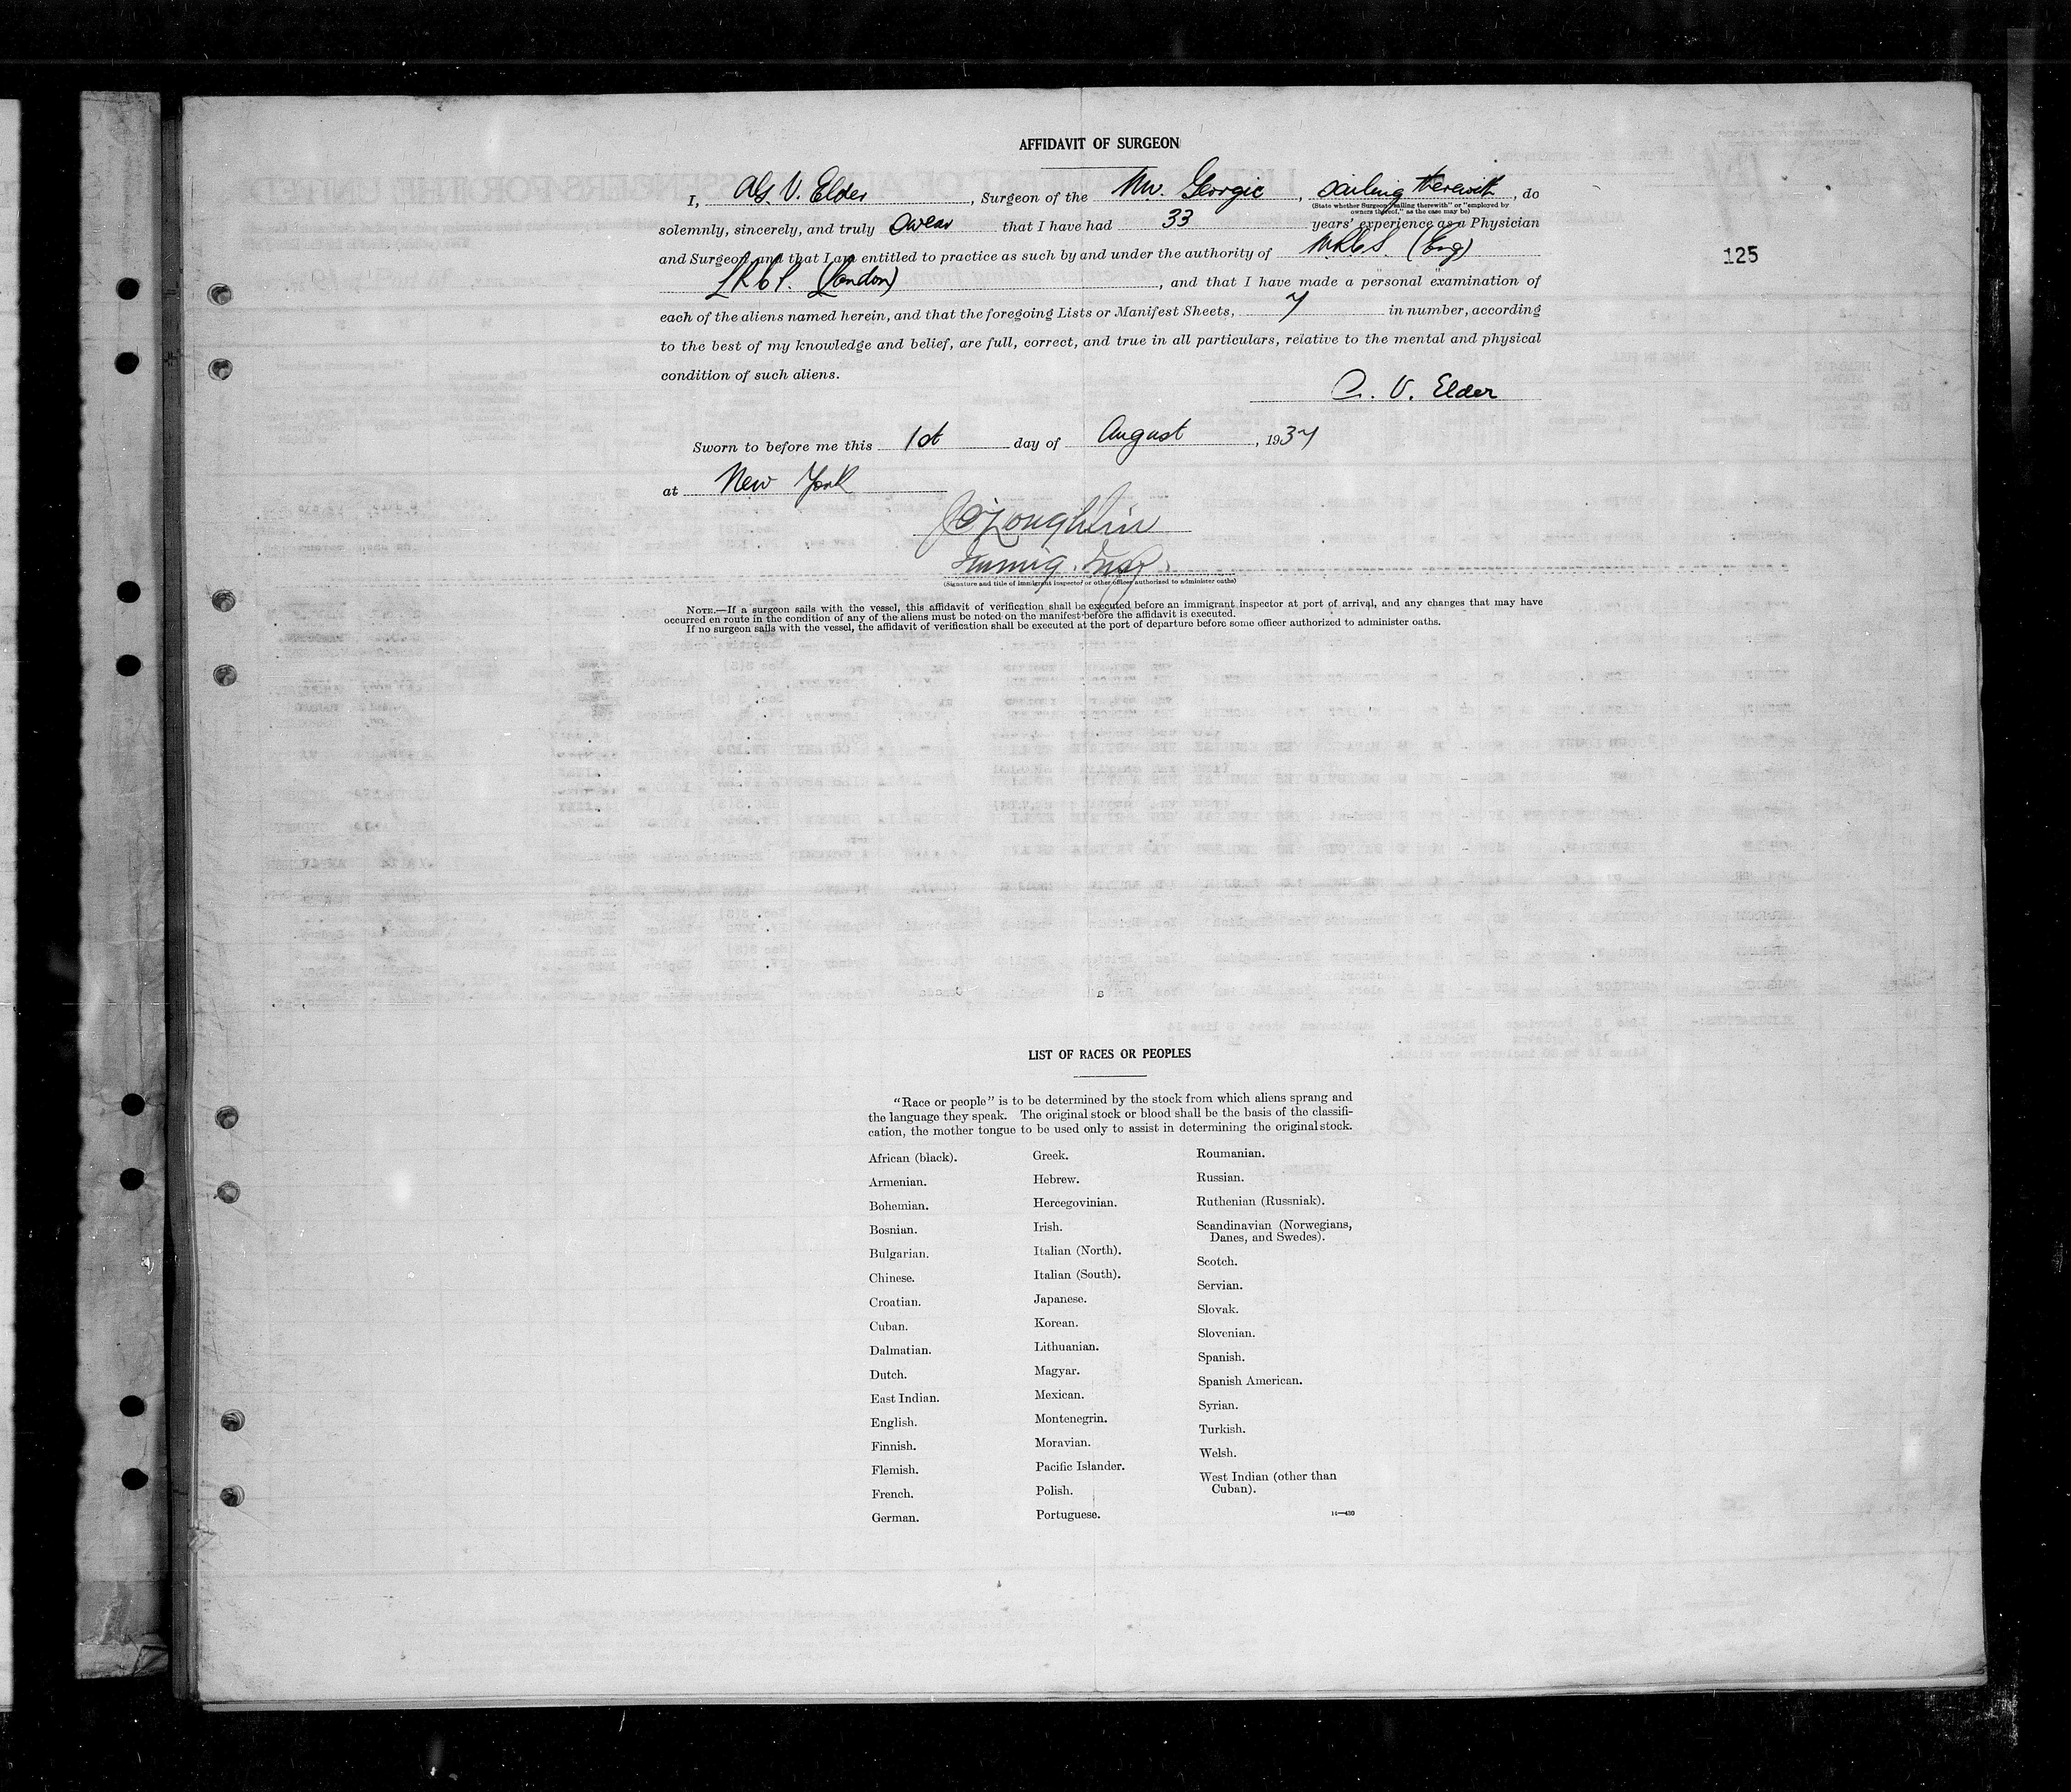 AFFIDAVIT OF SURGEON
I, Alf. V. Elder, Surgeon of the Mv. Georgic, sailing therewith, do
(State whether Surgeon "sailing therewith" or "employed by
owners thereof," as the case may be)
solemnly, sincerely, and truly swear that I have had 33 years' experience as a Physician
and Surgeon, and that I am entitled to practice as such by and under the authority of MRCS. (Eng)
LRCP. (London), and that I have made a personal examination of
each of the aliens named herein, and that the foregoing Lists or Manifest Sheets, 7 in number, according
to the best of my knowledge and belief, are full, correct, and true in all particulars, relative to the mental and physical
condition of such aliens.
A. V. Elder
Sworn to before me this 1st day of August, 1937
at New York
J O'Loughlin
Immig. Insp.
(Signature and title of immigrant inspector or other officer authorized to administer oaths)
NOTE.—If a surgeon sails with the vessel, this affidavit of verification shall be executed before an immigrant inspector at port of arrival, and any changes that may have
occurred en route in the condition of any of the aliens must be noted on the manifest before the affidavit is executed.
If no surgeon sails with the vessel, the affidavit of verification shall be executed at the port of departure before some officer authorized to administer oaths.
125
LIST OF RACES OR PEOPLES
"Race or people" is to be determined by the stock from which aliens sprang and
the language they speak. The original stock or blood shall be the basis of the classifi-
cation, the mother tongue to be used only to assist in determining the original stock.
African (black).
Armenian.
Bohemian.
Bosnian.
Bulgarian.
Chinese.
Croatian.
Cuban.
Dalmatian.
Dutch.
East Indian.
English.
Finnish.
Flemish.
French.
German.
Greek.
Hebrew.
Hercegovinian.
Irish.
Italian (North).
Italian (South).
Japanese.
Korean.
Lithuanian.
Magyar.
Mexican.
Montenegrin.
Moravian.
Pacific Islander.
Polish.
Portuguese.
Roumanian.
Russian.
Ruthenian (Russniak).
Scandinavian (Norwegians,
Danes, and Swedes).
Scotch.
Servian.
Slovak.
Slovenian.
Spanish.
Spanish American.
Syrian.
Turkish.
Welsh.
West Indian (other than
Cuban).
14—430